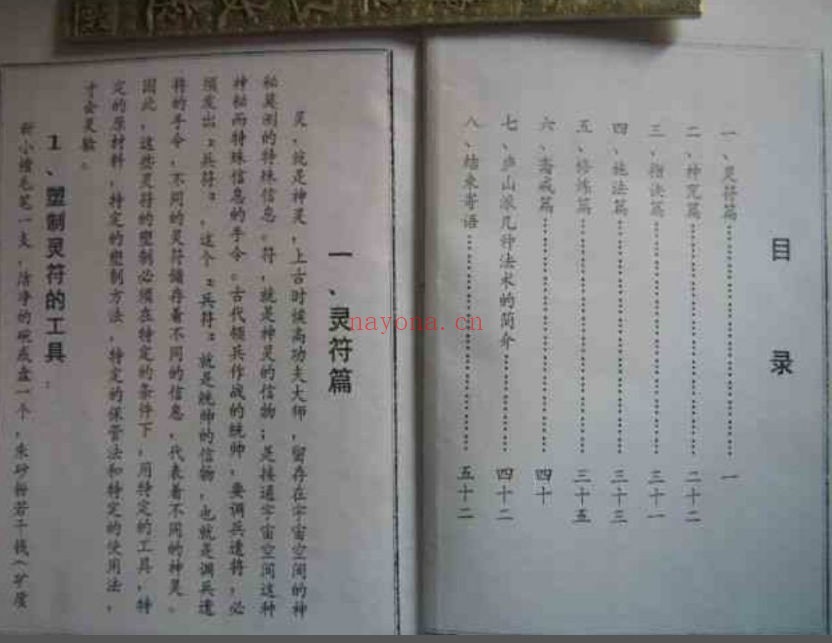 目录
一、灵符篇……………………一
二、神咒篇……………………二十二
三、指法篇……………………三十一
四、施法篇……………………三十三
五、修炼篇……………………三十五
六、斋戒篇……………………四十
七、庐山派几种法术的简介…………四十二
八、结束寄语……………………五十二
一、灵符篇
灵，就是神灵，上古时候高功夫大师，留存在宇宙空间的神
秘莫测的特殊信息。符，就是神灵的信物；是接通宇宙空间这种
神秘而特殊信息的手令。古代领兵作战的统帅，要调兵遣将，必
须发出“兵符”，这个“兵符”就是统帅的信物，也就是调兵遣
将的手令，不同的灵符储存着不同的信息，代表着不同的神灵。
因此，这些灵符的塑制必须在特定的条件下，用特定的工具，特
定的原材料，特定的塑制方法，特定的保管法和特定的使用法，
才会灵验。
1、塑制灵符的工具：
新小楷毛笔一支，洁净的碗或盘一个，朱砂粉若干钱（矿质
nayona.cn